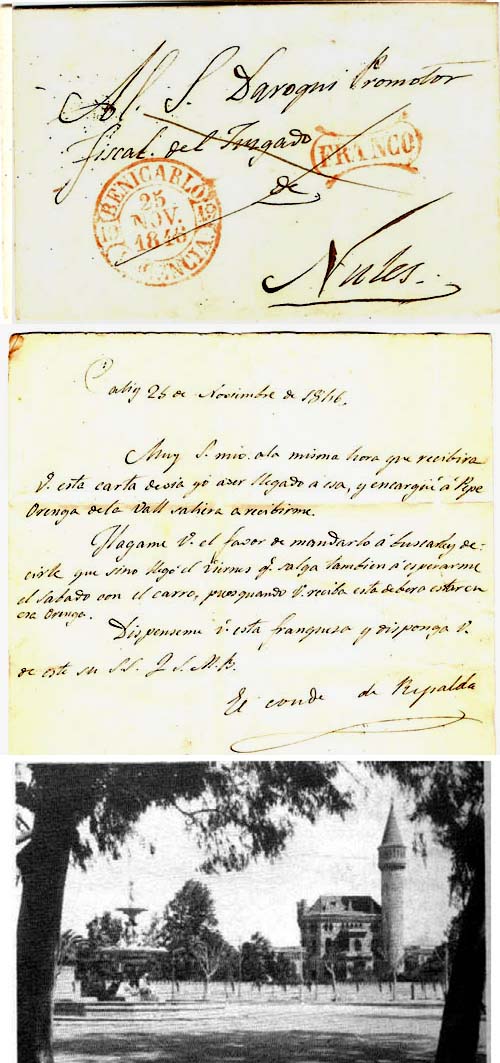 Al. S. Daroqui Promotor
Fiscal. del Juzgado
de
Nules.
FRANCO
BENICARLO
25
NOV.
1846
VALENCIA
Calig 25 de Noviembre de 1846.
Muy S. mio. ala misma hora que recibira
V. esta carta devia yó aver llegado á esa, y encargué á Pepe
Orenga dela Vall saliera a recibirme.
Hagame V. el favor de mandarlo á buscar, y de-
cirle que sino llegó el Viernes qe. salga tambien á esperarme
el Sabado con el carro, pues quando V. reciba esta deberá estar en
esa Orenga.
Dispenseme V. esta franqueza y disponga V.
de este su S.S. Q. S. M. B.
El conde de Ripalda